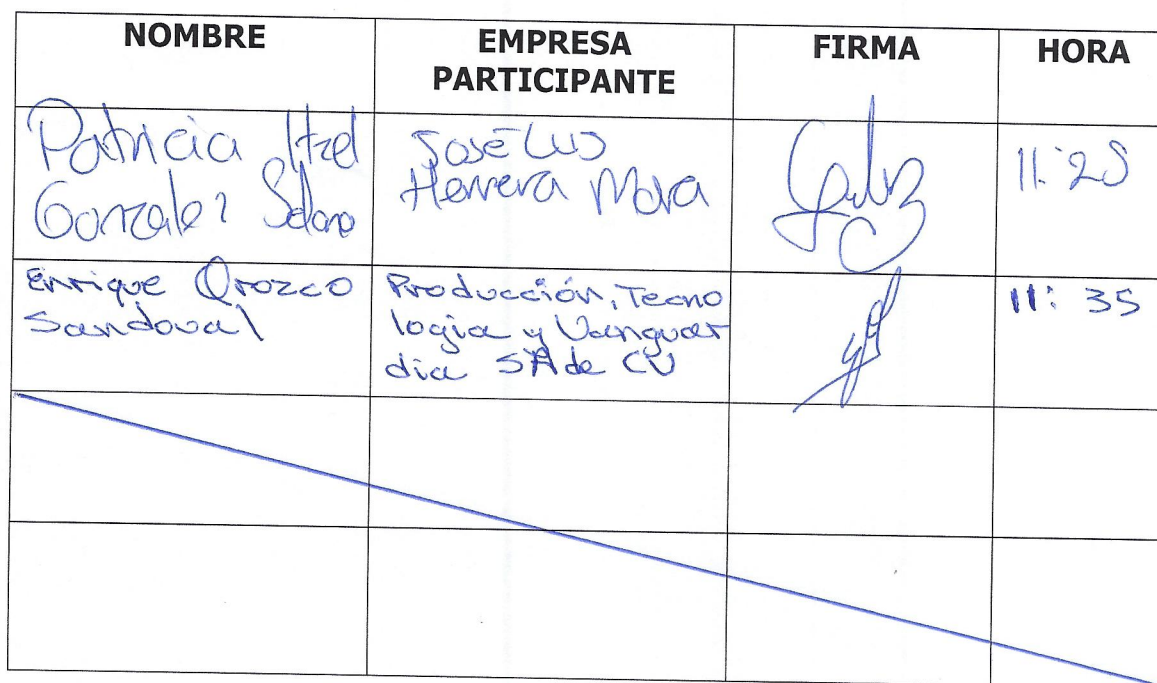 NOMBRE
EMPRESA
PARTICIPANTE
FIRMA
HORA
Patricia Itzel
Gonzalez Solano
José Luis
Herrera Mora
11:25
Enrique Orozco
Sandoval
Producción, Tecno
logia y Vanguar
dia SA de CV
11:35